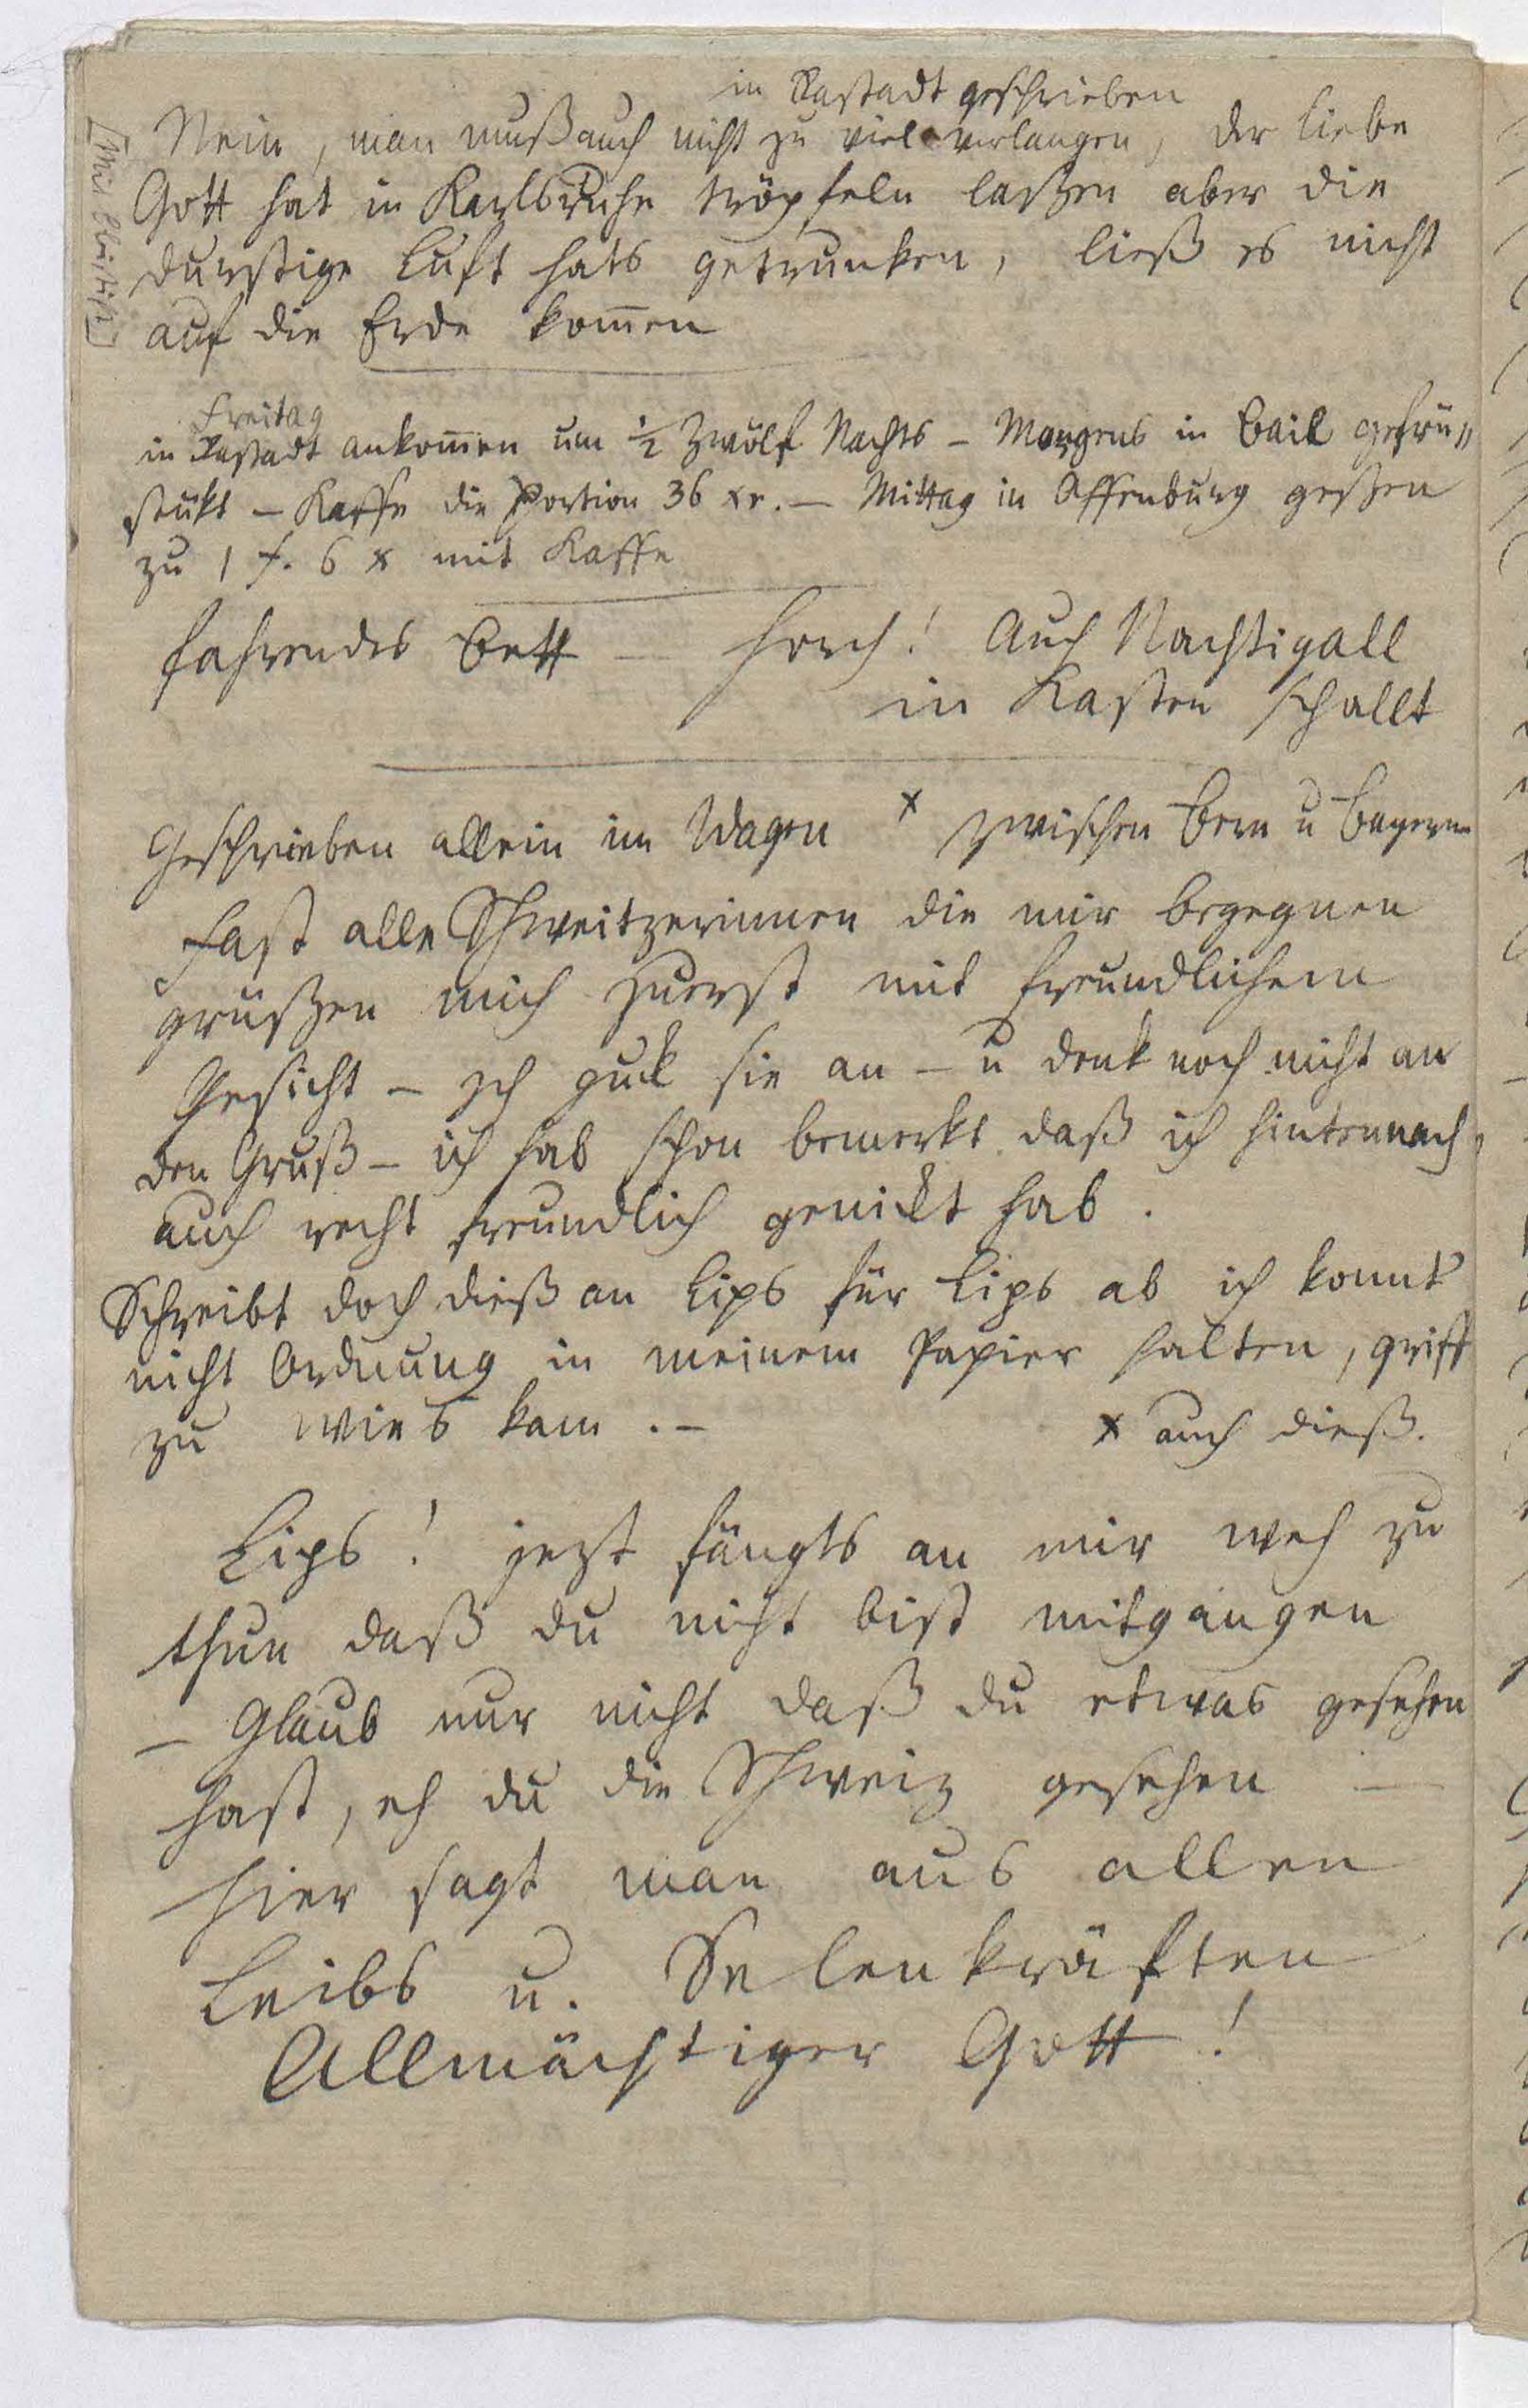 in Rastadt geschrieben
Nein, man muß auch nicht zu viel verlangen, der liebe
[Mit Bleistift]
Gott hat in Karlsruhe tröpfeln laßen aber die
durstige Luft hats getrunken, ließ es nicht
auf die Erde kom̄en
Freitag
in Rastadt ankom̄en um ½ Zwölf Nachts – Morgens in Bail gefrü„
stükt – Kaffe die Portion 36 xr. – Mittag in Offenburg geßen
zu 1 f. 6 x mit Kaffe
fahrendes Bett — Horch! Auch Nachtigall
in Kasten schallt
Geschrieben allein im Wagen x zwischen Bern u Bayerne
Fast alle Schweitzerinnen die mir begegnen
grüßen mich zuerst mit freundlichem
Gesicht – Ich guck sie an – u denk noch nicht an
den Gruß – ich hab schon bemerkt daß ich hintennach,
auch recht freundlich genickt hab.
Schreibt doch dieß an Lips für Lips ab ich konnt
nicht Ordnung in meinem Papier halten, griff
zu wies kam. –
x auch dieß.
Lips! jezt fängts an mir weh zu
thun daß du nicht bist mitgangen
– Glaub nur nicht daß du etwas gesehen
hast, eh du die Schweiz gesehen —
hier sagt man aus allen
Leibs u. Selenkräften
Allmächtiger Gott!